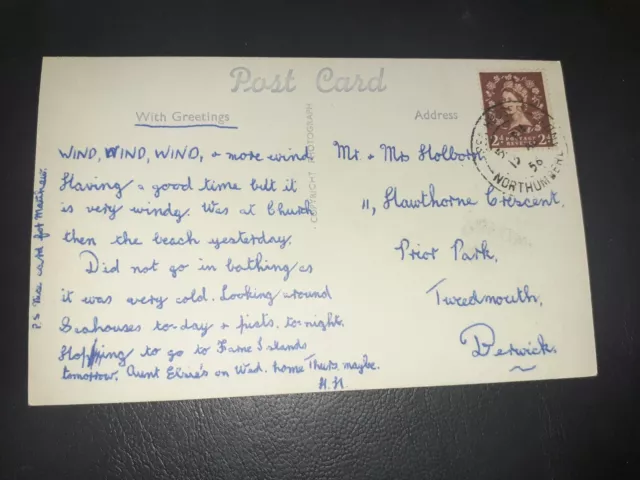 Post Card
With Greetings
Address
WIND, WIND, WIND, + more wind
Having a good time but it
is very windy. Was at Church
then the beach yesterday.
Did not go in bathing as
it was very cold. Looking around
Seahouses to-day + picts. to-night.
Hopping to go to Farne Islands
tomorrow. Aunt Elsie's on Wed. home Thurs. maybe.
H.H
P.S. Nice card for Matthew.
COPYRIGHT PHOTOGRAPH
Mr. + Mrs Holborn
11, Hawthorne Crescent,
Prior Park,
Tweedmouth,
Berwick.
2D POSTAGE REVENUE 2D
56
NORTHUMBERLAND